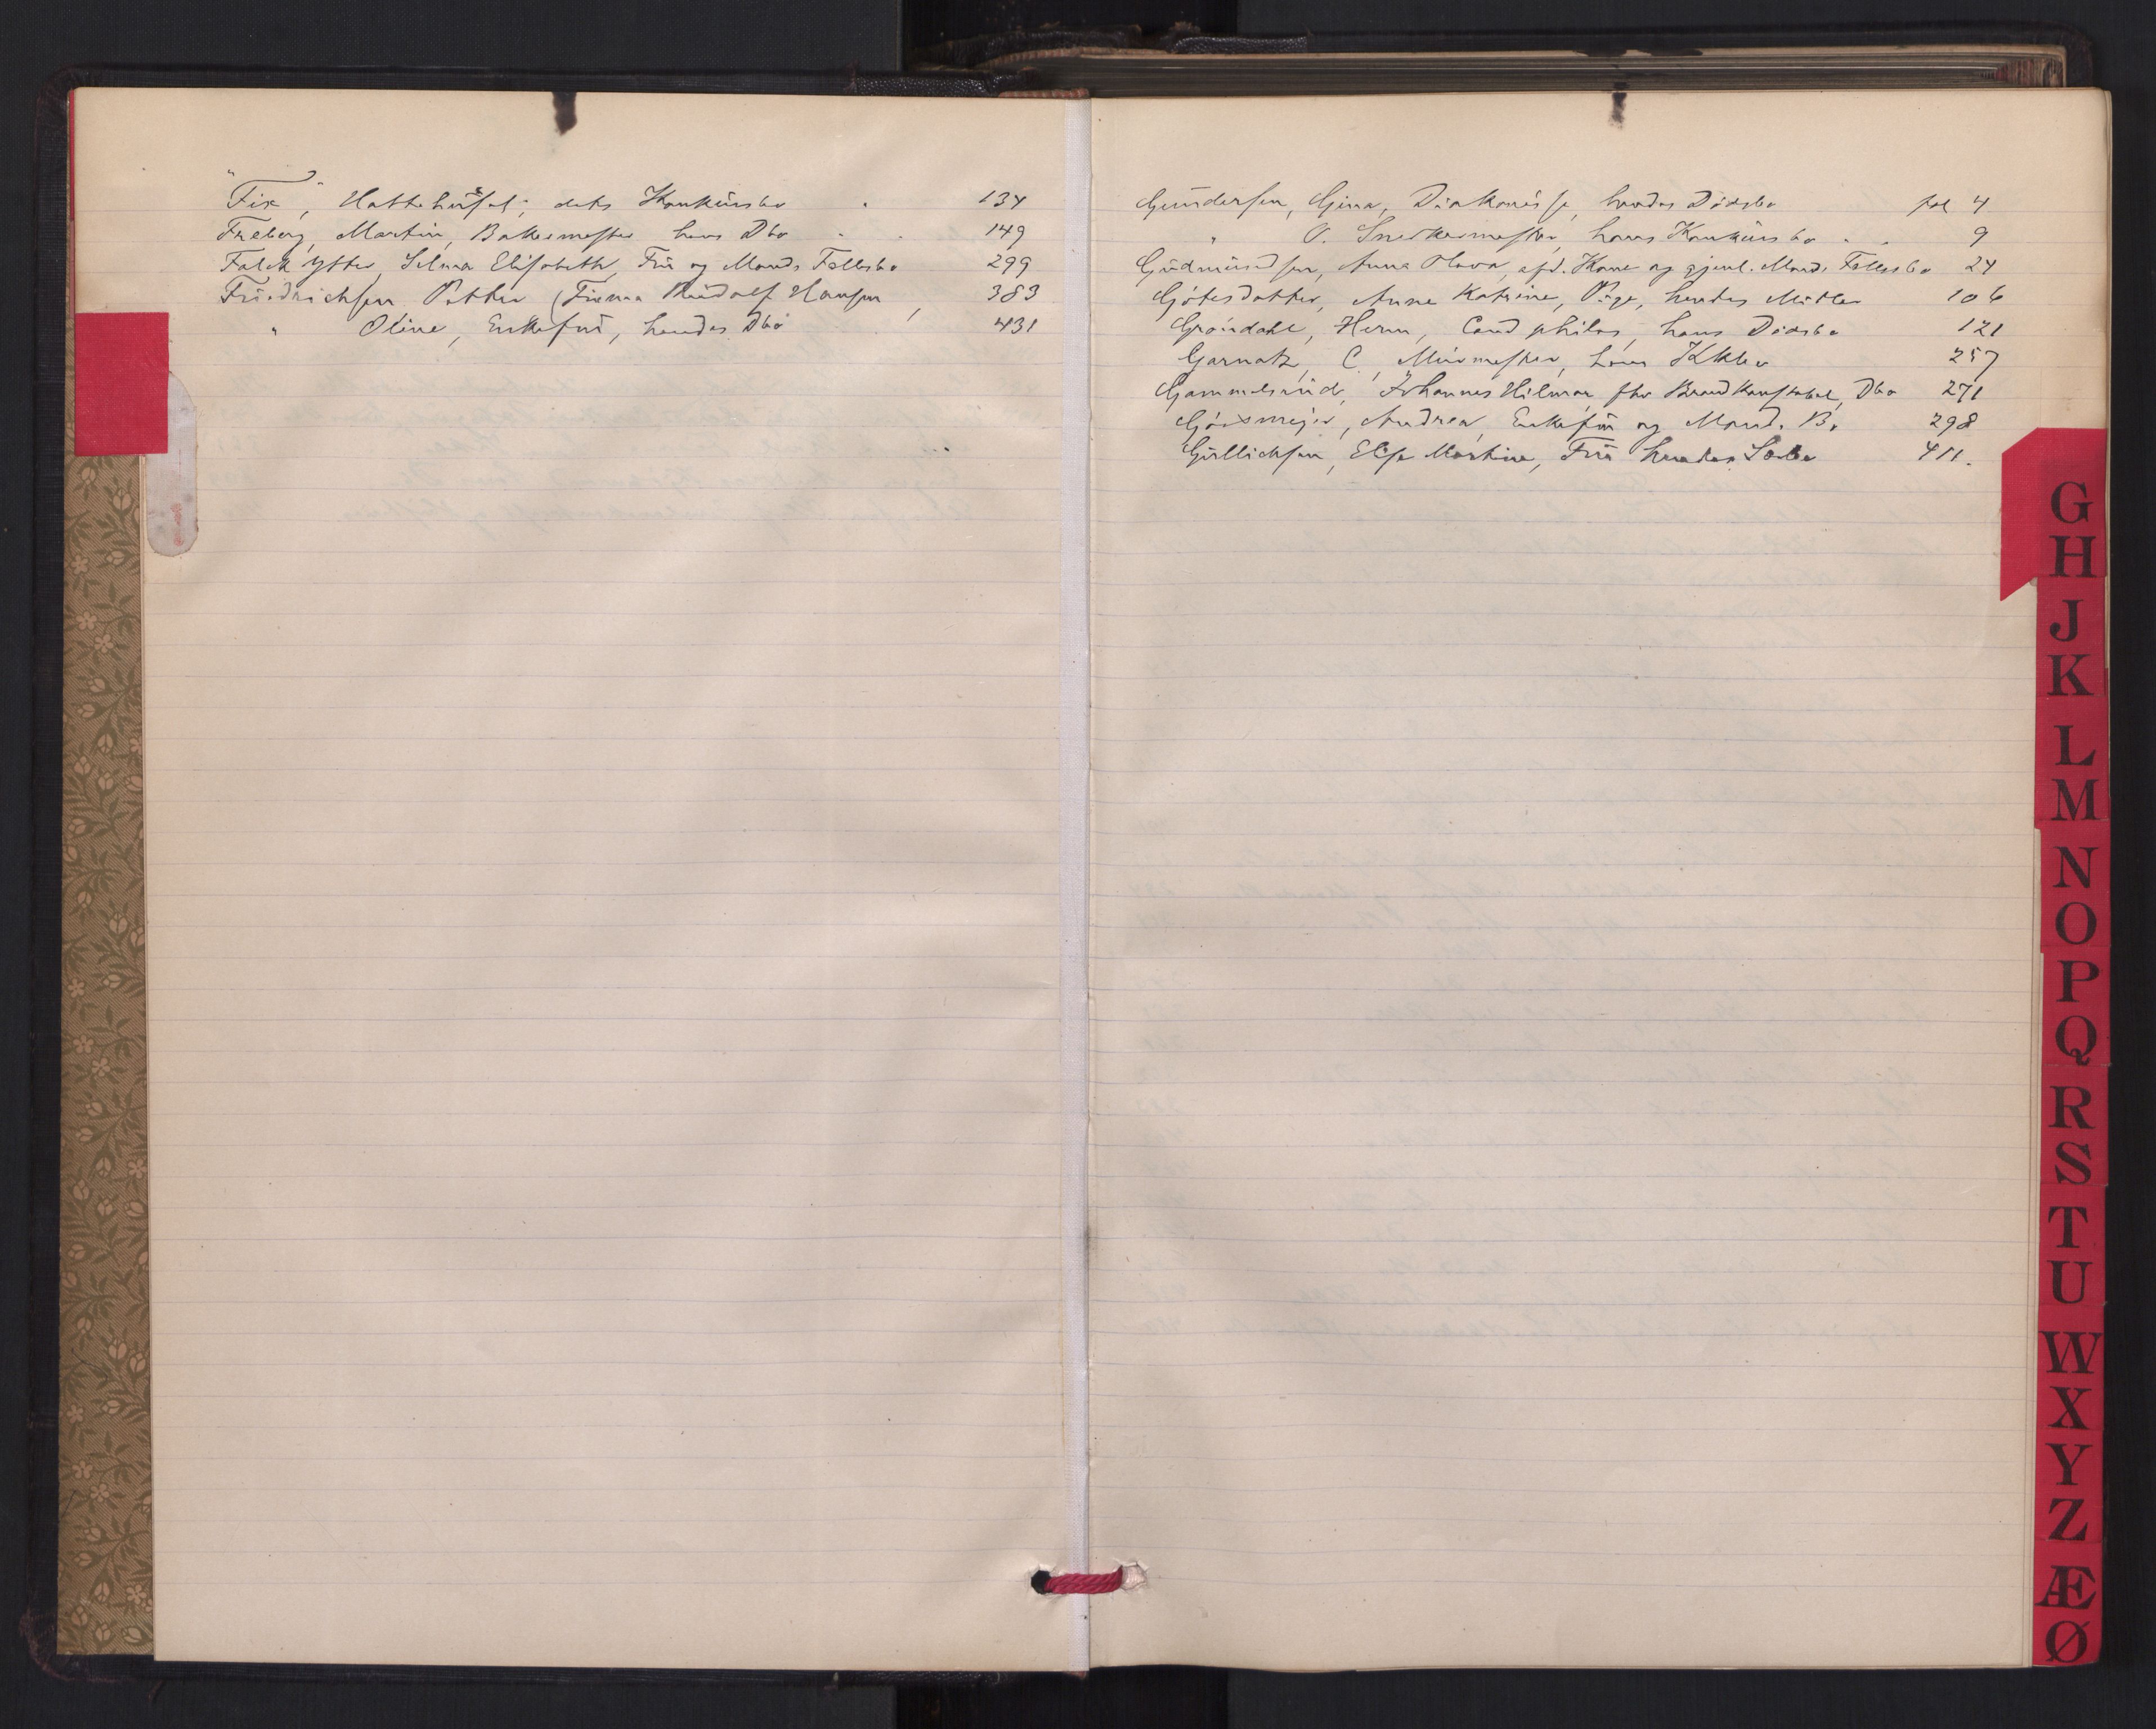 "Fix", Hattehuset, dets Konkursbo 134
Freberg, Martin, Bakermester hans Dbo 149
Falck Ytter, Selma Elisabeth, Fru og Mands Fællesbo 299
Friedrichsen Petter (Firma Rudolf Hansen, 383
" Oline, Enkefru, hendes Dbo 431
Gundersen, Gina, Diakonisse, hendes Dødsbo fol 4
" O. Snedkermester, hans Konkursbo 9
Gudmundsen, Anna Olava, afd. Kone og gjenl. Mands Fællesbo 24
Gjøtesdatter, Anne Katrine, Pige, hendes Midler 106
Grøndahl, Herm, Cand philos, hans Dødsbo 121
Garnatz, C, Murmester, hans Kkbo 257
Gammelsrud, Johannes Hilmar, fhv Brandkonstabel, Dbo 271
Andrea, Enkefru og Mands Bo 298
Gullichsen, Elise Martine, Fru hendes Særbo 411.
G
H
J
K
L
M
N
O
P
Q
R
S
T
U
W
X
Y
Z
Æ
Ø